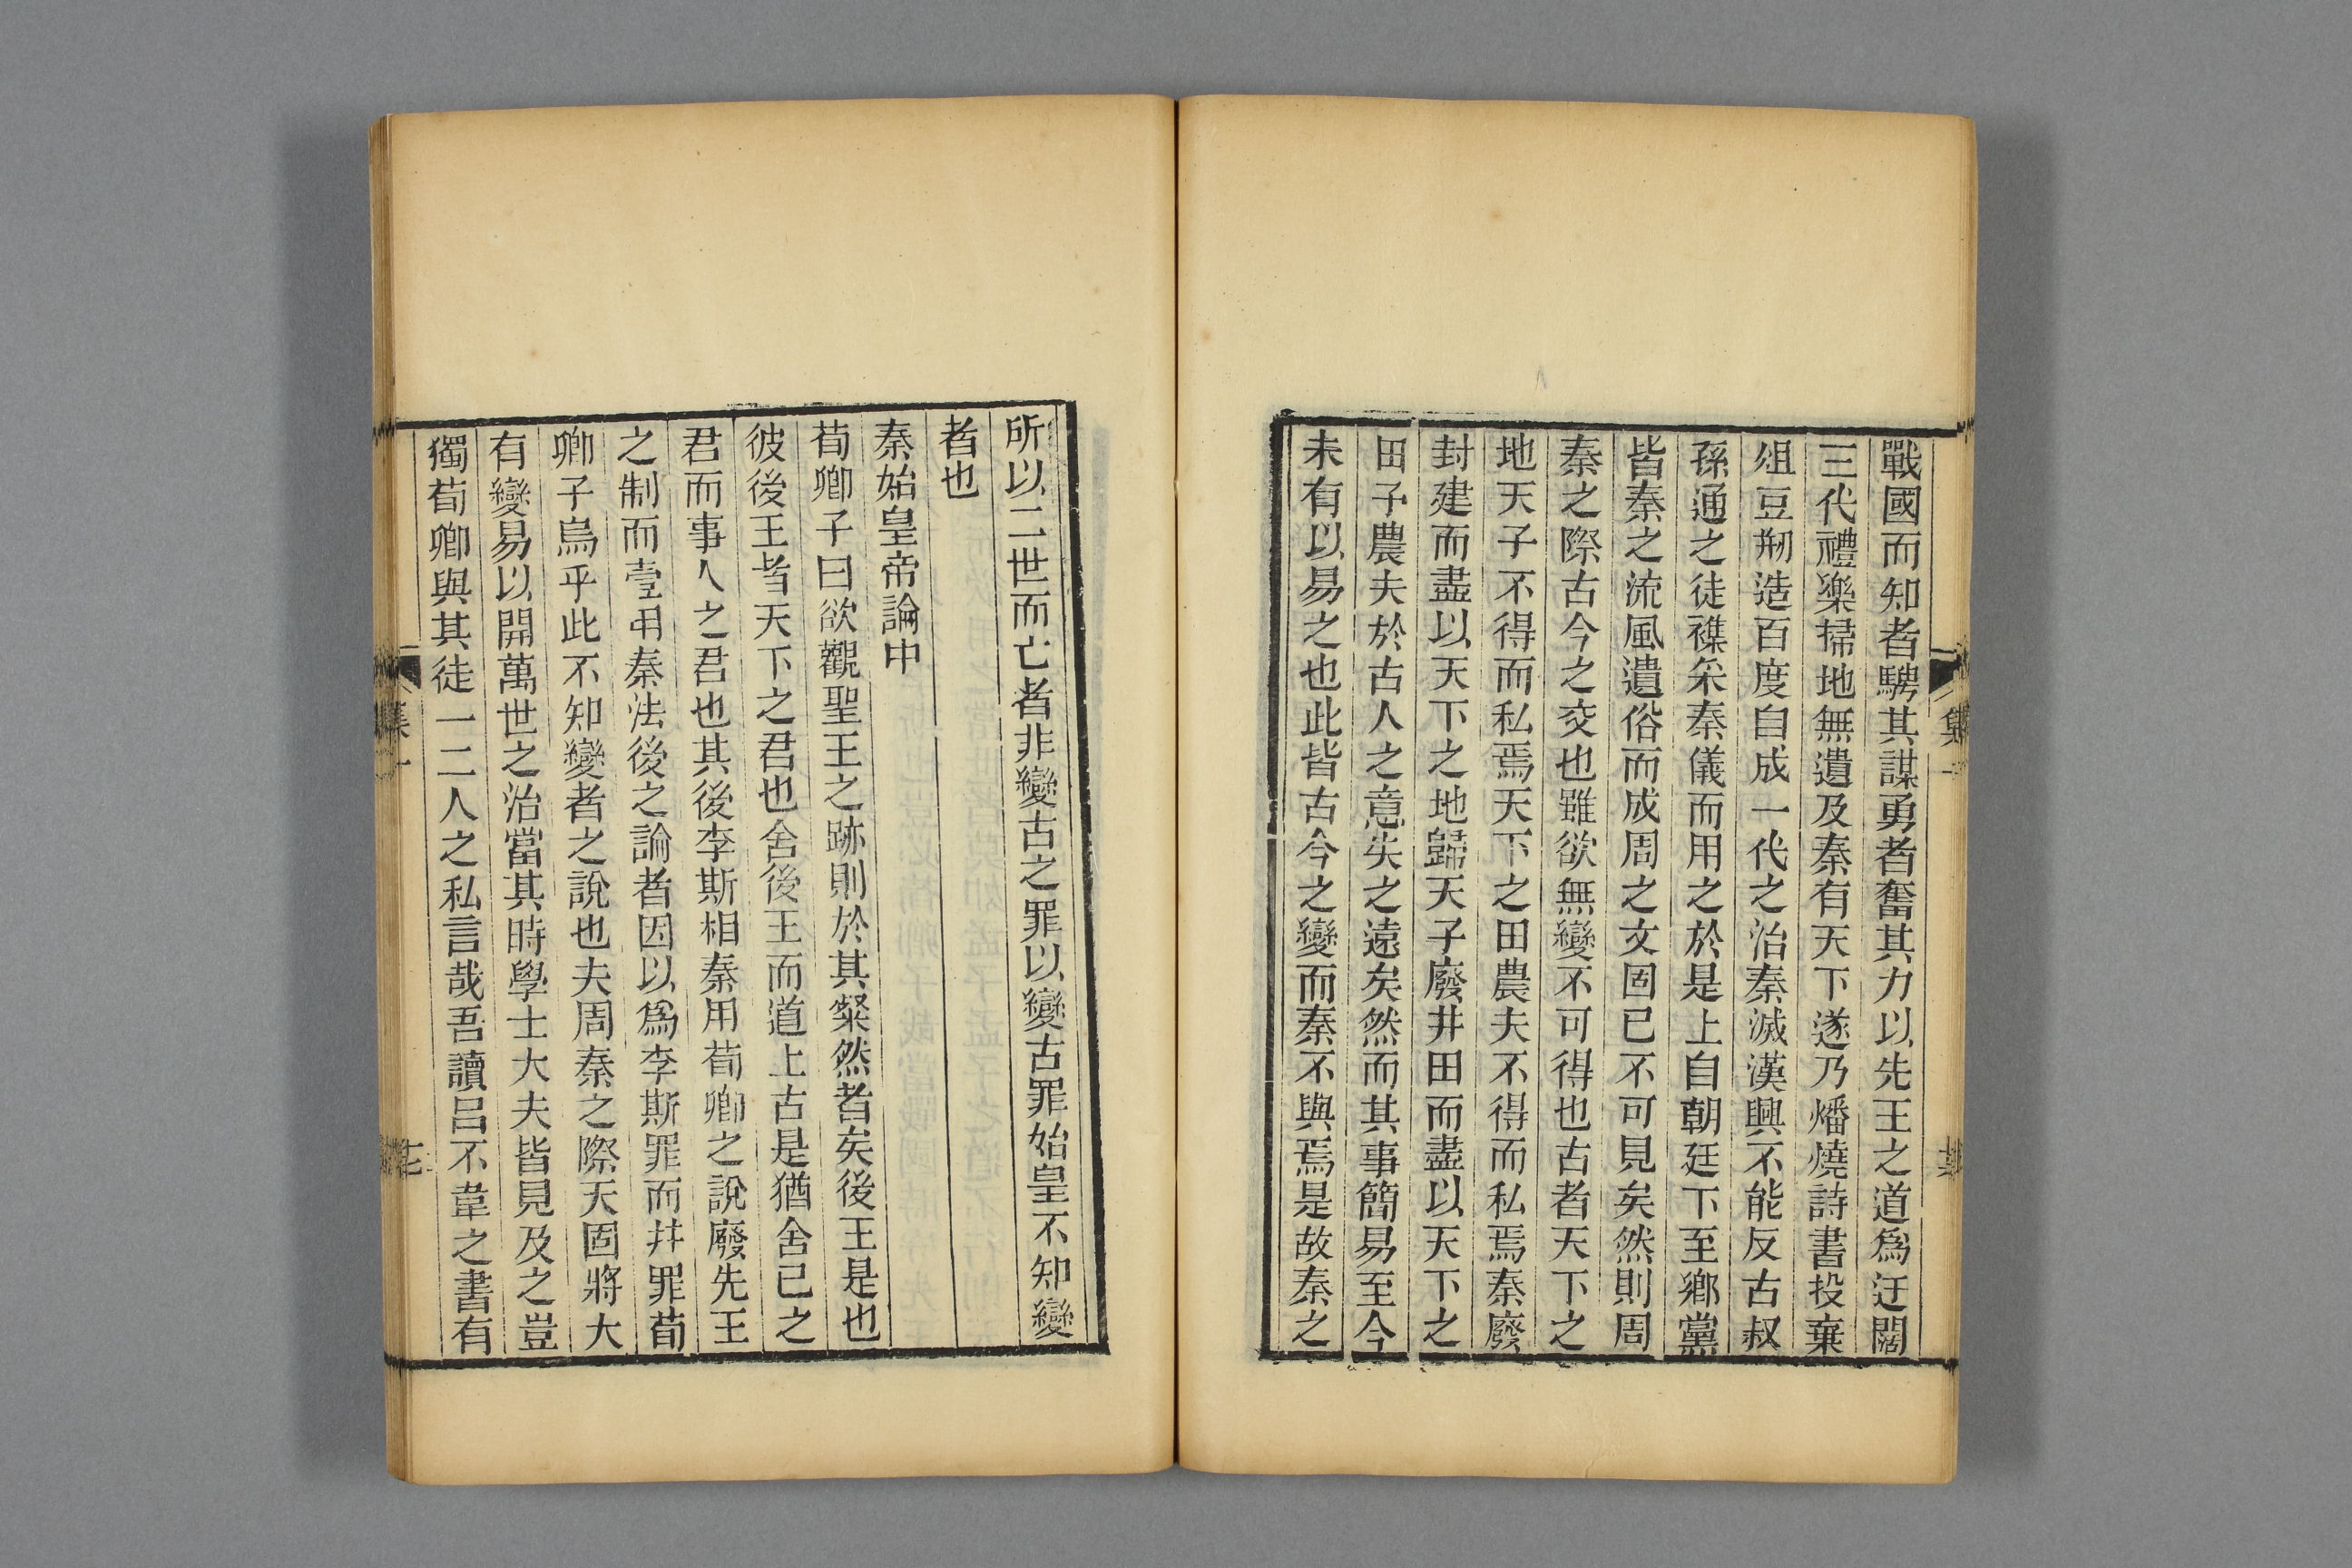 戰國而知者騁其謀勇者奮其力以先王之道爲迂闊
三代禮樂掃地無遺及秦有天下遂乃燔燒詩書投棄
俎豆剏造百度自成一代之治秦滅漢興不能反古叔
孫通之徒襍采秦儀而用之於是上自朝廷下至鄉黨
皆秦之流風遺俗而成周之文固已不可見矣然則周
秦之際古今之交也雖欲無變不可得也古者天下之
地天子不得而私焉天下之田農夫不得而私焉秦廢
封建而盡以天下之地歸天子廢井田而盡以天下之
田予農夫於古人之意失之遠矣然而其事簡易至今
未有以易之也此皆古今之變而秦不與焉是故秦之
所以二世而亡者非變古之罪以變古罪始皇不知變
者也
秦始皇帝論中
荀卿子曰欲觀聖王之跡則於其粲然者矣後王是也
彼後王者天下之君也舍後王而道上古是猶舍己之
君而事人之君也其後李斯相秦用荀卿之說廢先王
之制而壹用秦法後之論者因以爲李斯罪而幷罪荀
卿子烏乎此不知變者之說也夫周秦之際天固將大
有變易以開萬世之治當其時學士大夫皆見及之豈
獨荀卿與其徒一二人之私言哉吾讀呂不韋之書有